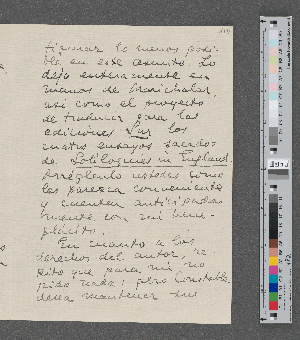 firmar lo menos posi-
ble en este asunto. Lo
dejo enteramente en
manos de Marichalar,
así como el proyecto
de traducir para las
ediciones Sur los
cuatro ensayos sacados
de Soliloquies in England.
Arréglenlo ustedes como
les parezca conveniente
y cuenten anticipada-
mente con mi bene-
plácito.
En cuanto a los
derechos del autor, re-
pito que para mí no
pido nada; pero Constable
desea mantener sus